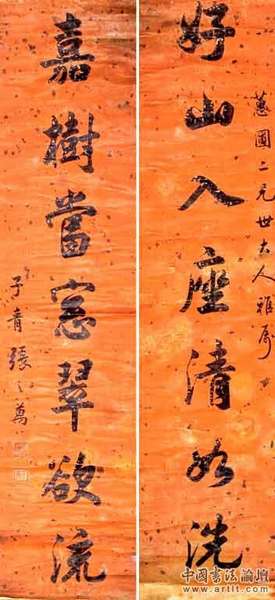 好山入座清如洗
蕙圃二兄世大人雅属
嘉樹當窓翠欲流
子青張之萬
中國書法論壇
www.artlt.com